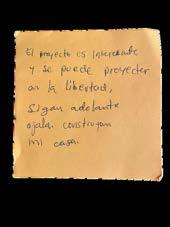 El proyecto es interesante
y se puede proyectar
en la libertad,
sigan adelante
ojala construyan
mi casa.